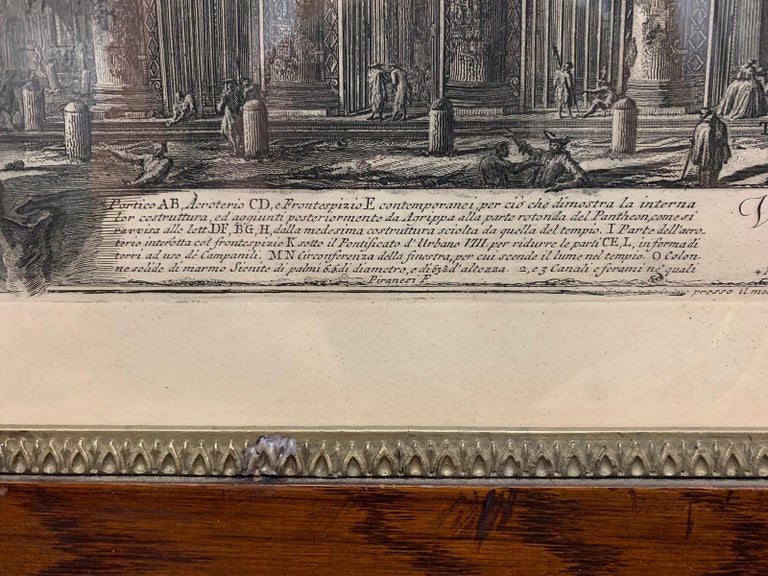 Portico AB, Acroterio CD, e Frontespizio E contemporanei, per ciò che dimostra la interna
lor costruttura, ed aggiunti posteriormente da Agrippa alla parte rotonda del Pantheon, come si
ravvisa alle lett. DF, BG, H, dalla medesima costruttura sciolta da quella del tempio. I Parte dell'acro-
terio interfotta col frontespizio K sotto il Pontificato d'Urbano VIII. per ridurre le parti CE, L, in forma di
torri ad uso de' Campanili, M N Circonferenza della finestra, per cui scende il lume nel tempio. O Colon-
ne solide di marmo Sienite di palmi di diametro, e di d'altezza. 2, e 3 Canali e forami ne' quali
Piranesi F.
V
presso il me